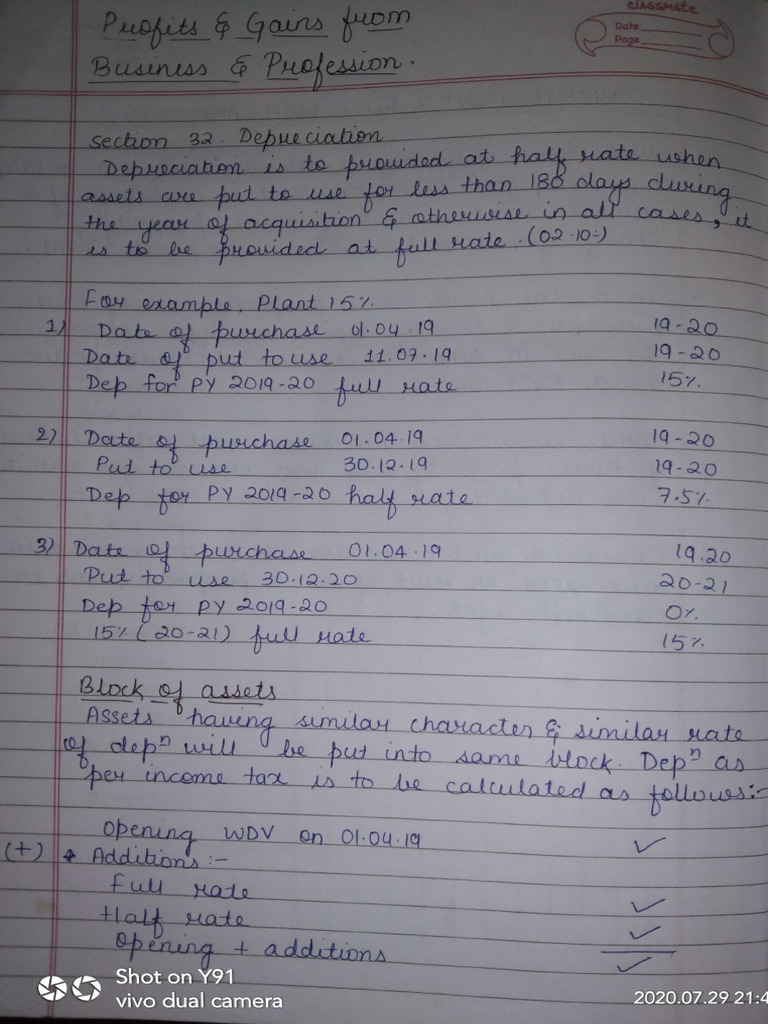 Profits & Gains from
Business & Profession.
classmate
Date
Page
Section 32. Depreciation
Depreciation is to provided at half rate when
assets are put to use for less than 180 days during
the year of acquisition & otherwise in all cases, it
is to be provided at full rate. (02-10-)
For example. Plant 15%.
1) Date of purchase 01.04.19 19-20
Date of put to use 11.07.19 19-20
Dep for PY 2019-20 full rate 15%.
2) Date of purchase 01.04.19 19-20
Put to use 30.12.19 19-20
Dep for PY 2019-20 half rate 7.5%.
3) Date of purchase 01.04.19 19.20
Put to use 30.12.20 20-21
Dep for PY 2019-20 0%.
15% (20-21) full rate 15%.
Block of assets
Assets having similar character & similar rate
of depn will be put into same block. Depn as
per income tax is to be calculated as follows:-
Opening WDV on 01.04.19 ✓
(+) Additions:-
Full rate ✓
Half rate ✓
Opening + additions ✓
Shot on Y91
vivo dual camera
2020.07.29 21:4